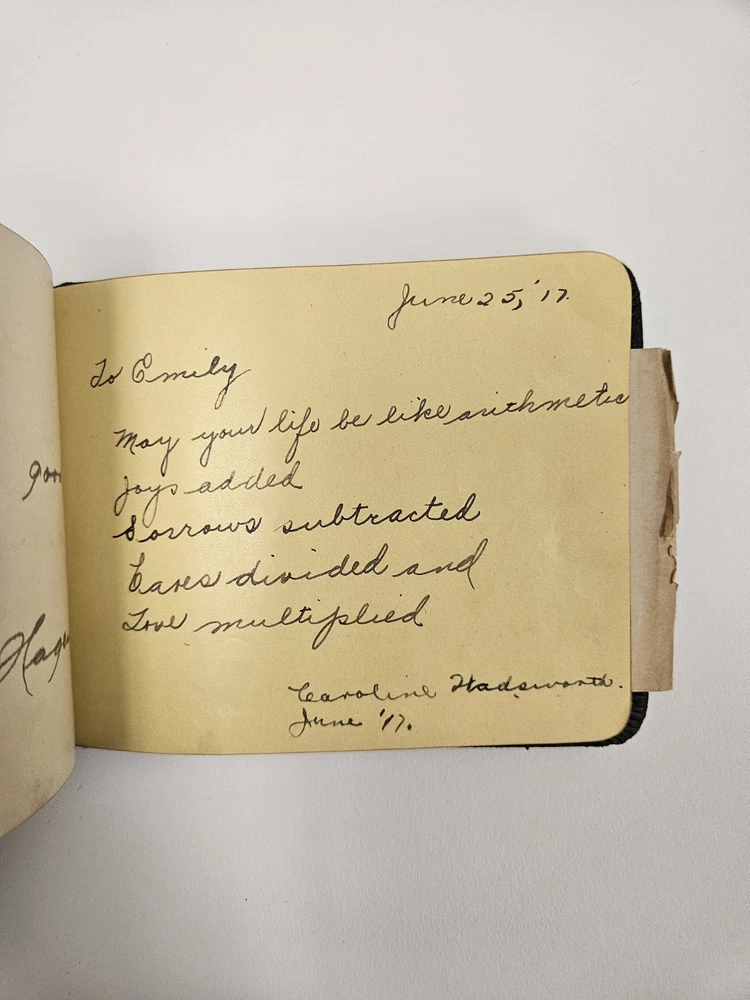 June 25, '17.
To Emily
May your life be like arithmetic
Joys added
Sorrows subtracted
Cares divided and
Love multiplied
Caroline
June '17.